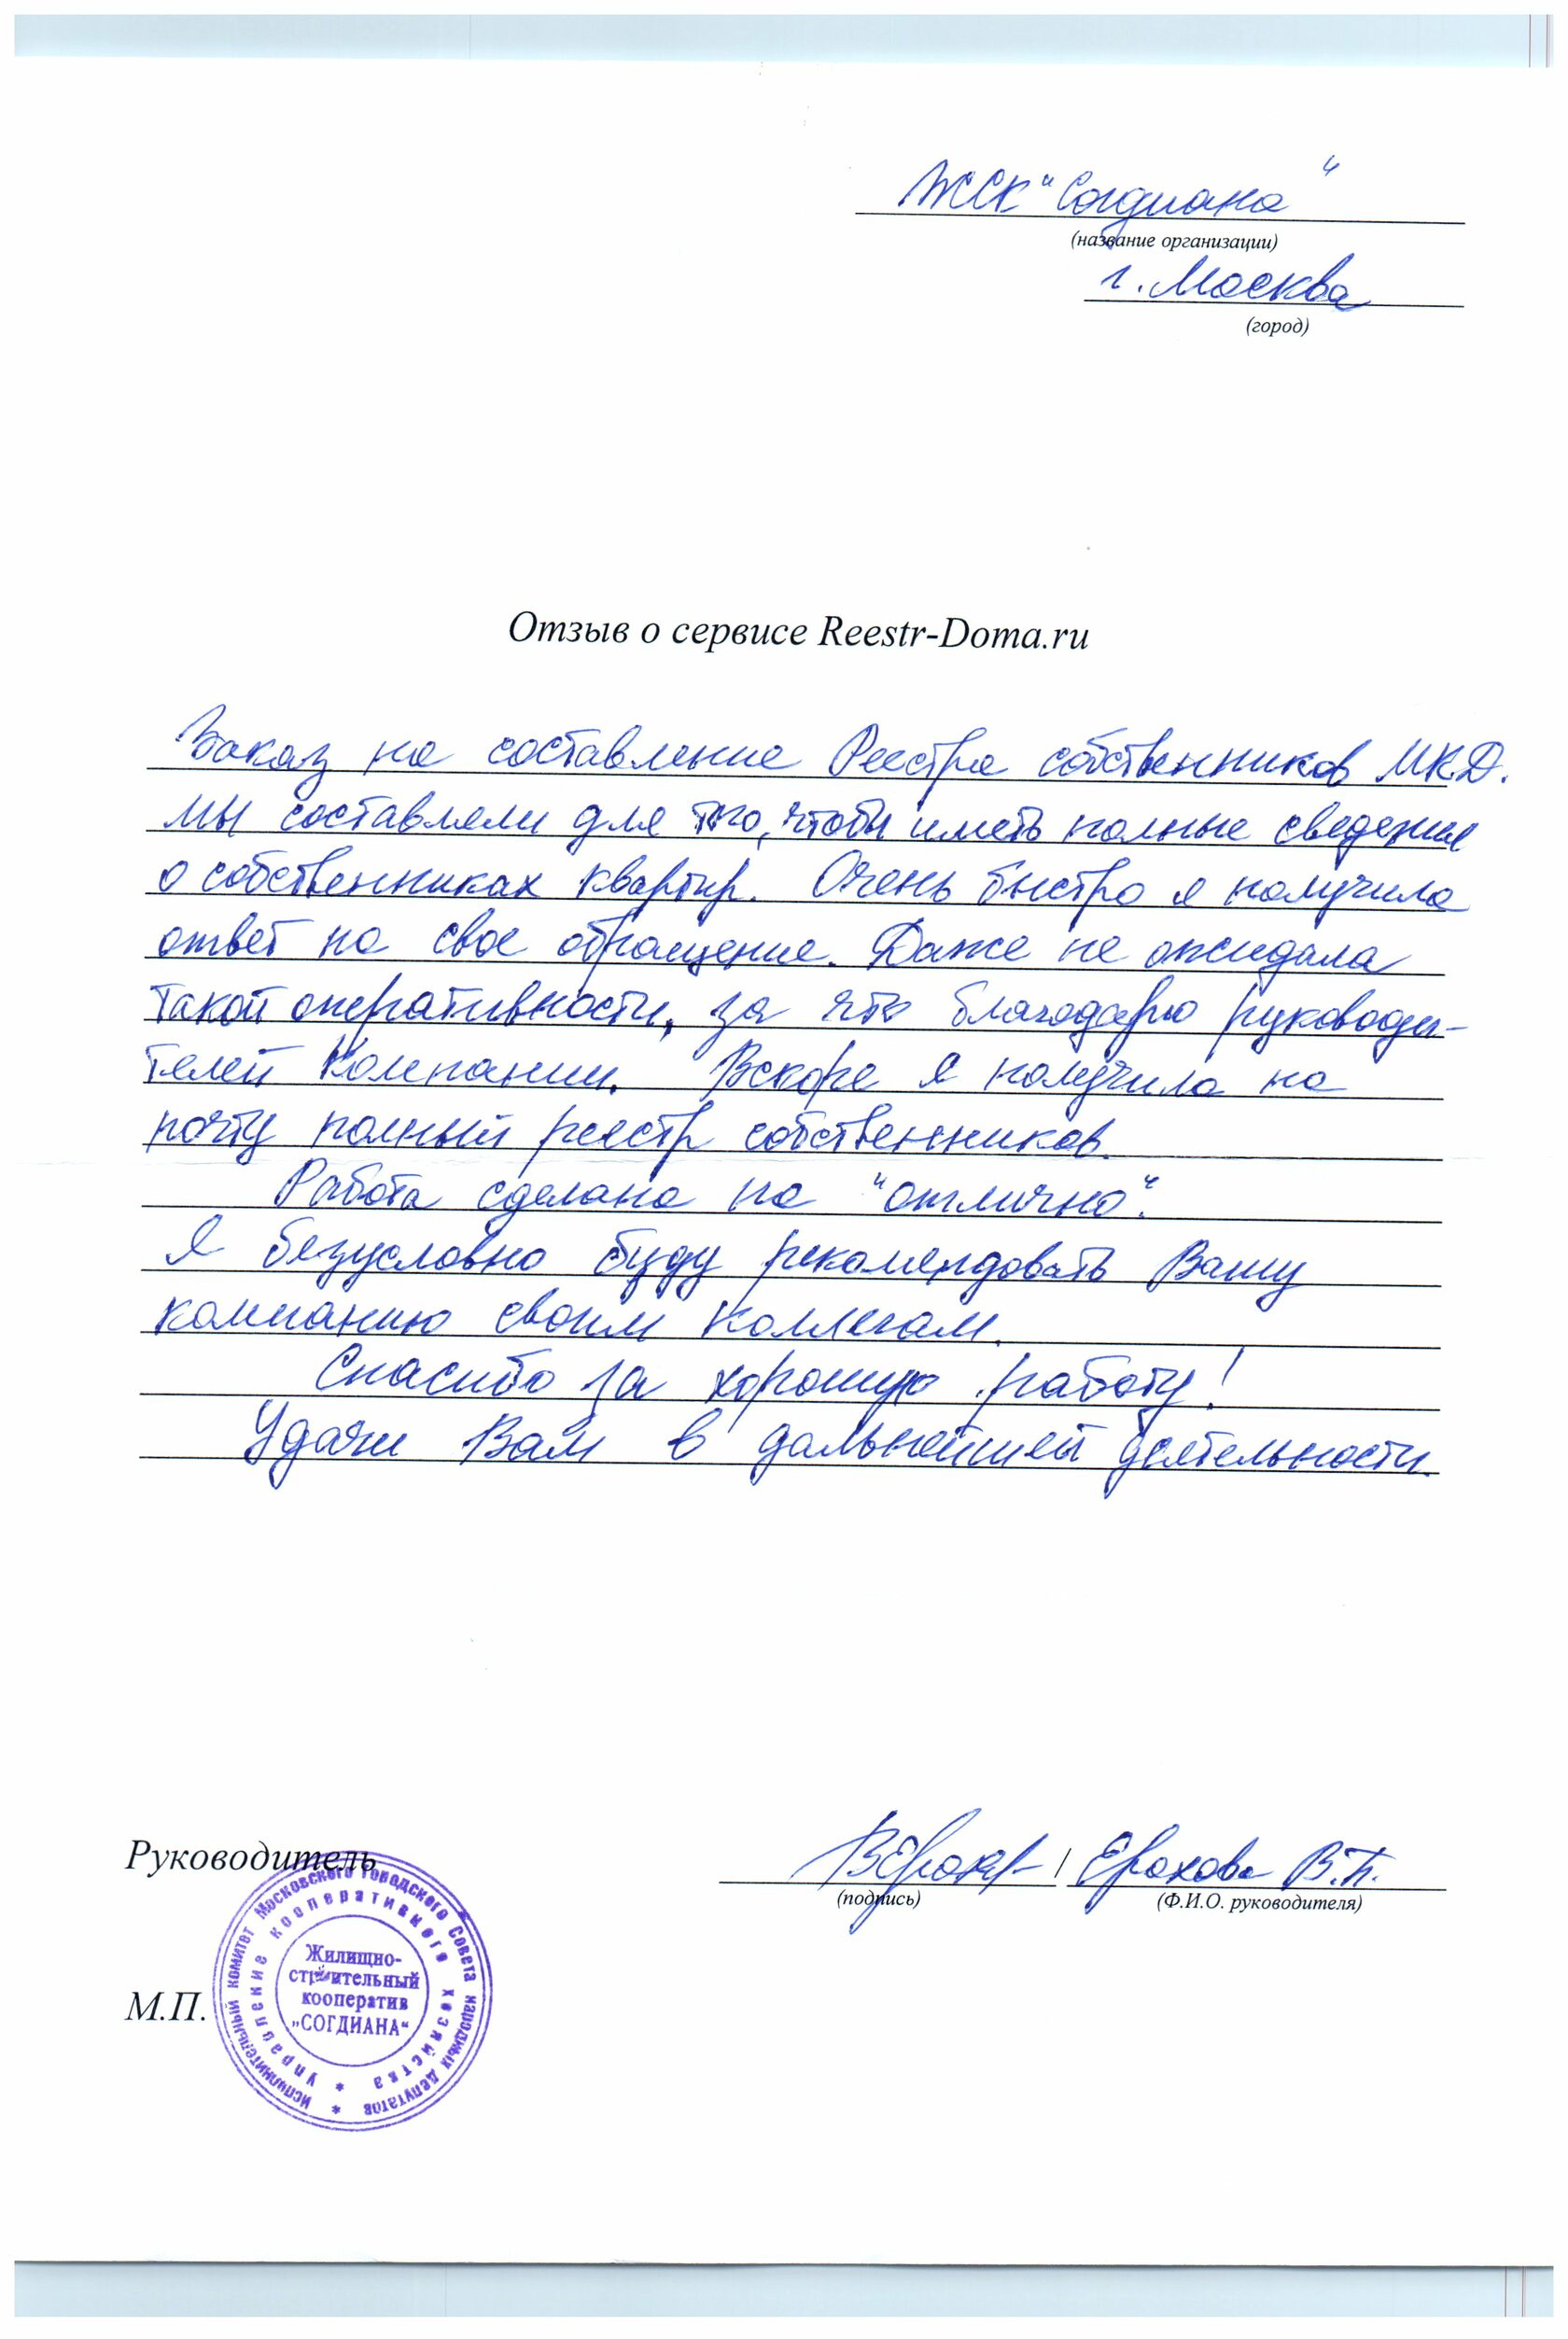 ЖСК "Согдиана"
(название организации)
г. Москва
(город)
Отзыв о сервисе Reestr-Doma.ru
Заказ на составление Реестра собственников МКД.
мы составляли для того, чтобы иметь полные сведения
о собственниках квартир. Очень быстро я получила
ответ на свое обращение. Даже не ожидала
такой оперативности, за что благодарю руководи-
телей Компании. Вскоре я получила на
почту полный реестр собственников.
Работа сделана на "отлично".
Я безусловно буду рекомендовать Вашу
компанию своим коллегам.
Спасибо за хорошую работу!
Удачи Вам в дальнейшей деятельности.
Руководитель
/ Ерохова В.П.
(подпись) (Ф.И.О. руководителя)
М.П.
Исполнительный комитет Московского Городского Совета народных депутатов *
Управление кооперативного хозяйства *
Жилищно-
строительный
кооператив
„СОГДИАНА“